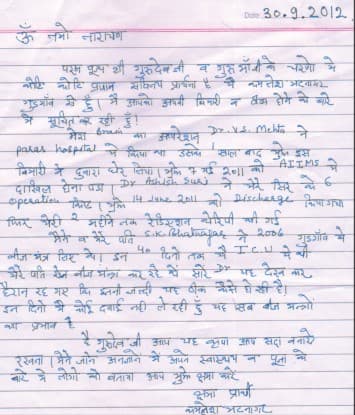 Date: 30.9.2012
ॐ नमो नारायण
परम पूज्य श्री गुरुदेव जी व गुरु माँ जी के चरणों में
कोटि कोटि प्रणाम सविनय प्रार्थना है मैं कमलेश भटनागर
गुड़गाँव से हूँ। मैं आपको अपनी बिमारी व ठीक होने के बारे
में सूचित कर रही हूँ।
मेरा Brain का ऑपरेशन Dr. V.S. Mehta ने
paras hospital में किया था उसके 1 साल बाद मुझे इस
बिमारी ने दुबारा घेर लिया। मुझे 7 मई 2011 को AIIMS में
दाखिल होना पड़ा। Dr Ashish Suri ने मेरे सिर के 6
operation किए। मुझे 14 June 2011 को Discharge किया गया
फिर मेरी 2 महीने तक रेडिएशन थैरेपी की गई
मैंने व मेरे पति S.K. Bhatnagar ने 2006 गुड़गाँव में
बीज मंत्र लिए थे। इन 40 दिनों तक मैं I.C.U में थी
मेरे पति रोज बीज मंत्र कर रहे थे सारे Dr यह देख कर
हैरान रह गए कि इतनी जल्दी यह ठीक कैसे हो रही है।
इन दिनों में कोई दवाई नहीं ले रही हूँ यह सब बीज मंत्रों
का प्रभाव है
हे गुरुदेव जी आप यह कृपा आप सदा बनाये
रखना। मैंने जाने अनजाने में अपने स्वास्थय व पूजा के
बारे में लोगों को बताया आप मुझे क्षमा करें
क्षमा प्रार्थी
कमलेश भटनागर